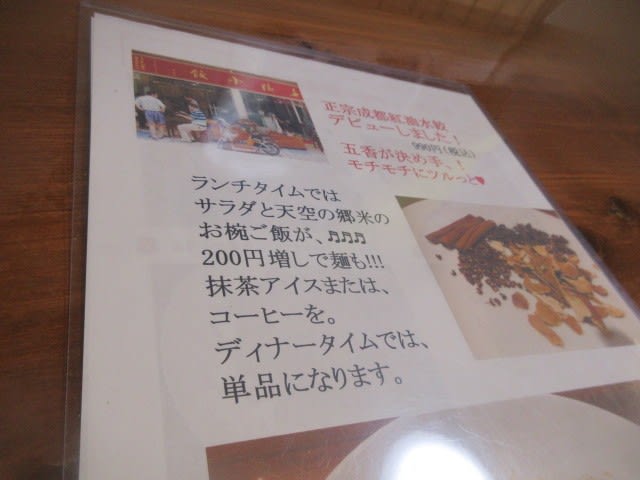 正宗成都紅油水餃
デビューしました！
990円（税込）
五香が決め手、！
モチモチにツルっと♥
ランチタイムでは
サラダと天空の郷米の
お椀ご飯が、♬♬♬
200円増しで麺も!!!
抹茶アイスまたは、
コーヒーを。
ディナータイムでは、
単品になります。